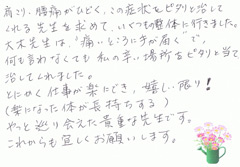 肩こり、腰痛がひどく、この症状をピタリと治して
くれる先生を求めて、いくつもの整体に行きました。
大木先生は、“痛いところに手が届く”で、
何も言わなくても 私の辛い場所をピタリと当て
治してくれました。
とにかく仕事が楽にでき、嬉しい限り！
(楽になった体が長持ちする)
やっと巡り会えた貴重な先生です。
これからも宜しくお願いします。